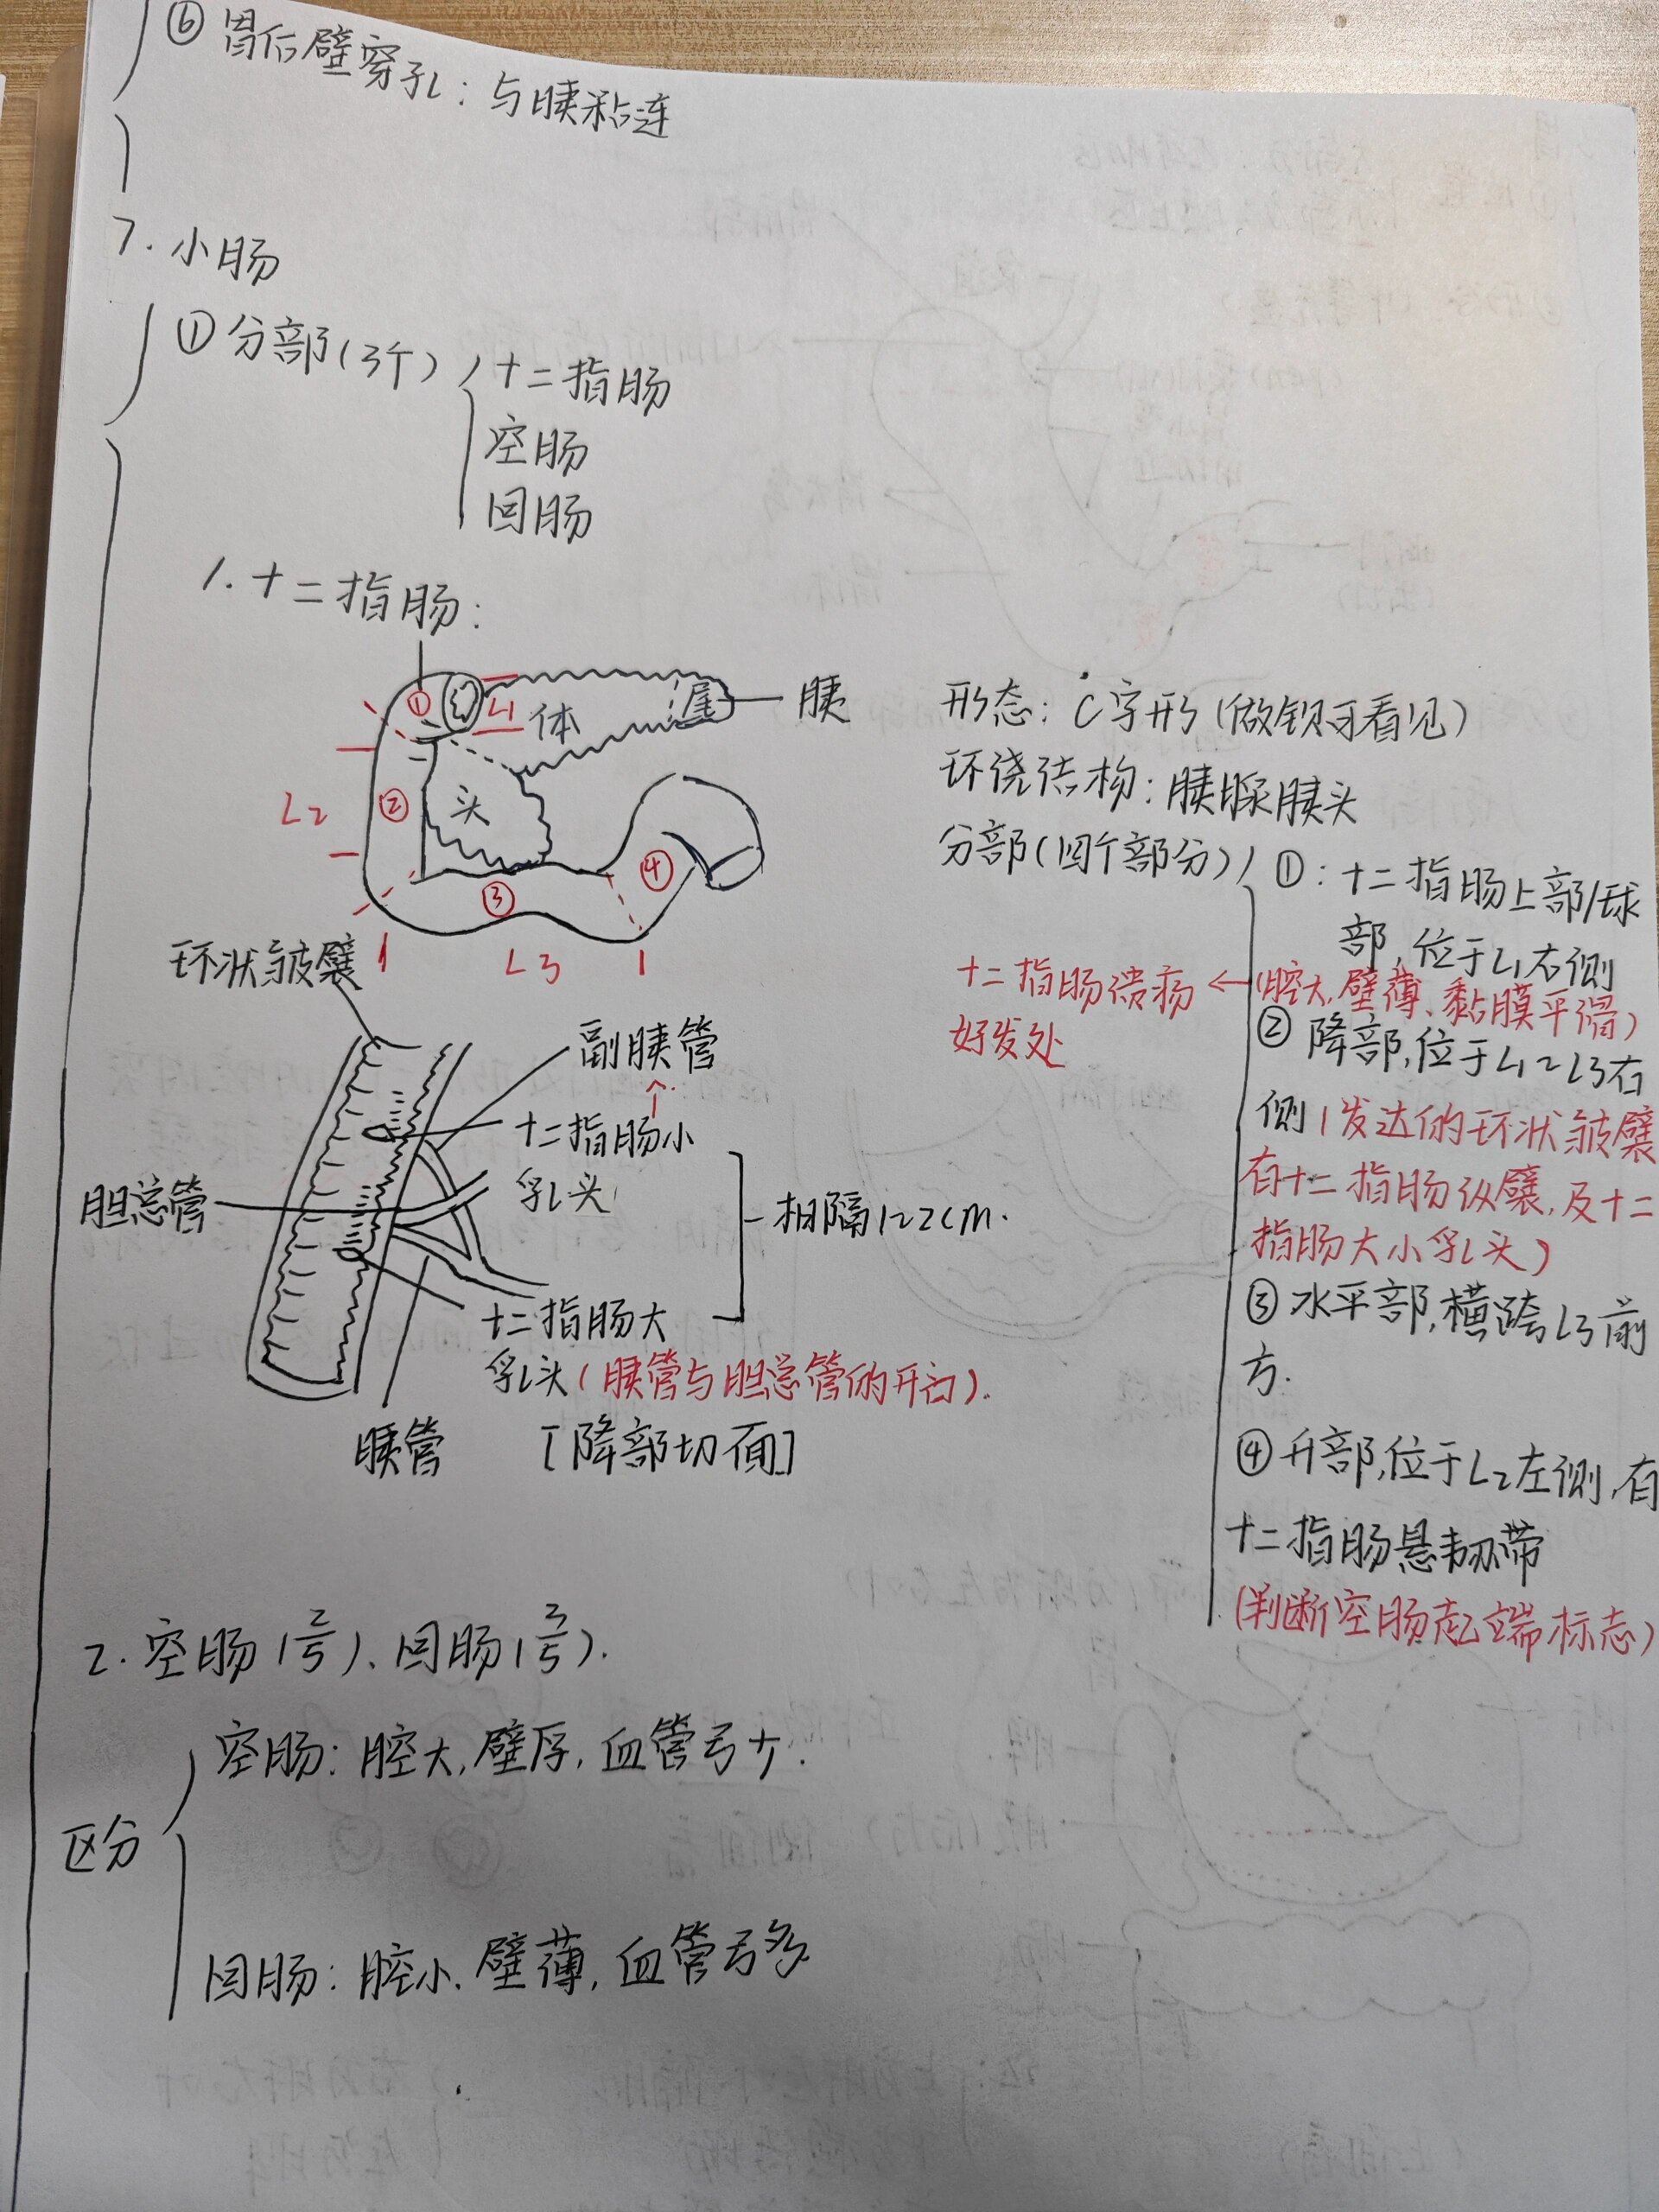 ⑥ 胃后壁穿孔：与胰粘连
7. 小肠
① 分部(3个)
十二指肠
空肠
回肠
1. 十二指肠：
①
L1
体
尾
胰
L2
②
头
③
④
L3
形态：C字形(做钡可看见)
环绕结构：胰脏胰头
分部(四个部分)
①：十二指肠上部/球
部,位于L1右侧
(腔大,壁薄、黏膜平滑)
十二指肠溃疡
好发处
② 降部,位于L1~L3右
侧(发达的环状皱襞
有十二指肠纵襞,及十二
指肠大小乳头)
③ 水平部,横跨L3前
方.
④ 升部,位于L2左侧,有
十二指肠悬韧带
(判断空肠起端标志)
环状皱襞
副胰管
十二指肠小
乳头
胆总管
相隔1~2cm.
十二指肠大
乳头(胰管与胆总管的开口).
胰管
[降部切面]
2. 空肠(2/5)、回肠(3/5).
区分
空肠：腔大,壁厚,血管弓少.
回肠：腔小.壁薄,血管弓多